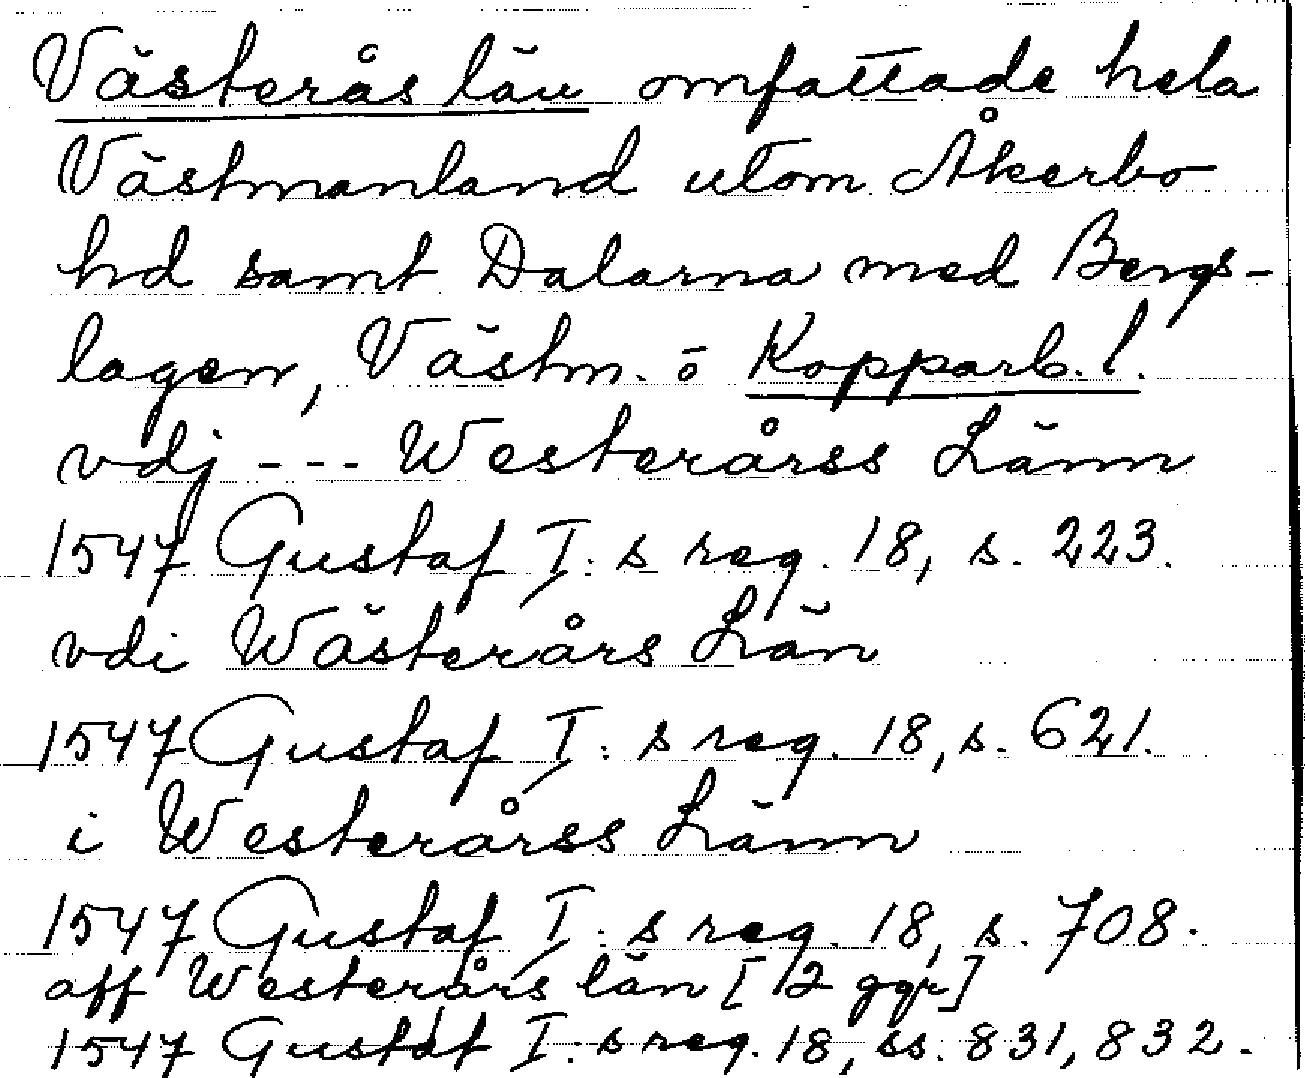 Västerås län omfattade hela
Västmanland utom Åkerbo
hd samt Dalarna med Bergs-
lagen, Västm. o Kopparb. l.
vdj --- Westerårss Länn
1547 Gustaf I: s reg. 18, s. 223.
vdi Wästerårs Län
1547 Gustaf I: s reg. 18, s. 621.
i Westerårss Länn
1547 Gustaf I: s reg. 18, s. 708.
aff Westerårs län [12 ggr]
1547 Gustaf I: s reg. 18, ss. 831, 832.